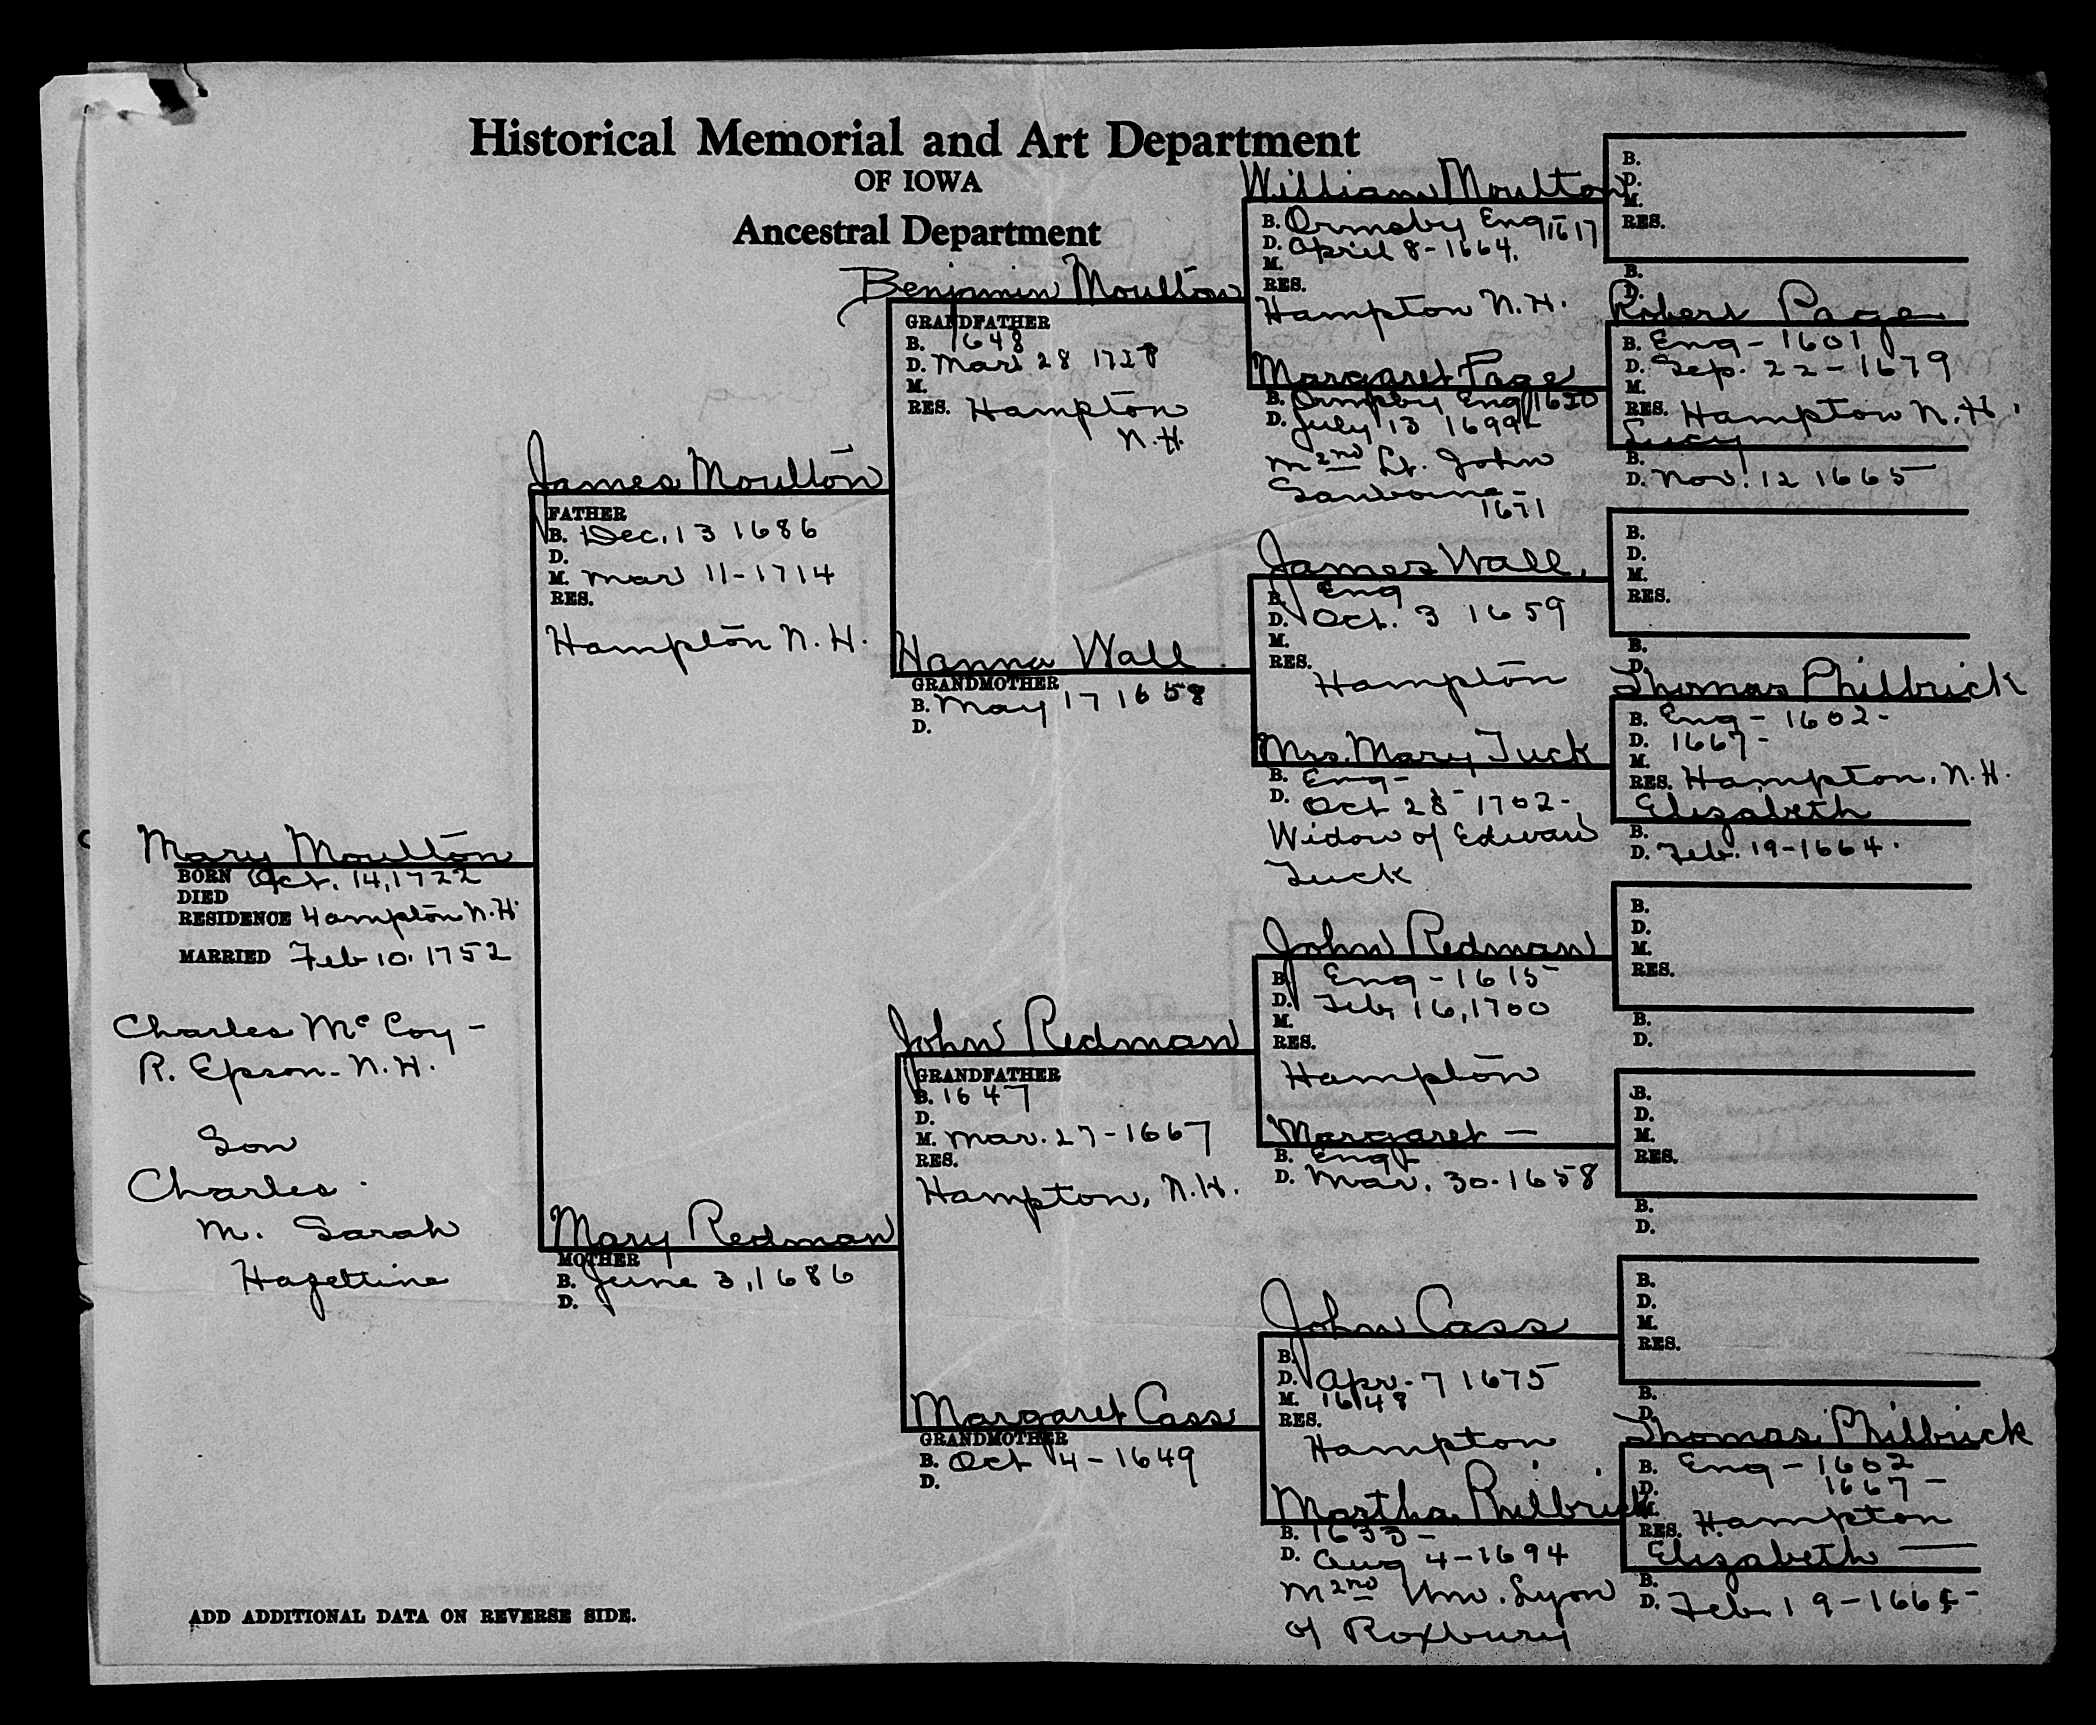 Historical Memorial and Art Department
OF IOWA
Ancestral Department
Mary Moulton
BORN Oct. 14, 1722
DIED
RESIDENCE Hampton N.H.
MARRIED Feb 10. 1752
Charles Mc Coy -
R. Epson - N.H.
Son
Charles.
M. Sarah
Hazeltine
James Moulton
FATHER
B. Dec. 13 1686
D.
M. Mar 11-1714
RES.
Hampton N.H.
Mary Redman
MOTHER
B. June 3, 1686
D.
Benjamin Moulton
GRANDFATHER
B. 1648
D. Mar 28 1728
M.
RES. Hampton
N.H.
Hanna Wall
GRANDMOTHER
B. May 17 1658
D.
John Redman
GRANDFATHER
B. 1647
D.
M. Mar. 27-1667
RES.
Hampton, N.H.
Margaret Cass
GRANDMOTHER
B. Oct 4-1649
D.
William Moulton
B. Ormsby Eng 1617
D. April 8-1664.
M.
RES.
Hampton N.H.
Margaret Page
B. Ormsby Eng
D. July 13 1699-
M 2nd Lt. John
Sanborne -
1671
James Wall.
B. Eng
D. Oct. 3 1659
M.
RES.
Hampton
Mrs. Mary Tuck
B. Eng-
D. Oct 28 - 1702-
Widow of Edward
Tuck
John Redman
B. Eng-1615-
D. Feb. 16, 1700
M.
RES.
Hampton
Margaret —
B. Eng-
D. Mar. 30-1658
John Cass
B.
D. Apr. 7 1675
M. 1648
RES.
Hampton
Martha Philbrick
B. 1633-
D. Aug 4-1694
M 2nd Wm. Lyon
of Roxbury
B.
D.
M.
RES.
B.
D.
Robert Page
B. Eng-1601
D. Sep. 22-1679
M.
RES. Hampton N.H.
Lucy
B.
D. Nov. 12 1665
B.
D.
M.
RES.
B.
D.
Thomas Philbrick
B. Eng-1602-
D. 1667-
M.
RES. Hampton. N.H.
Elizabeth
B.
D. Feb. 19-1664.
B.
D.
M.
RES.
B.
D.
B.
D.
M.
RES.
B.
D.
B.
D.
M.
RES.
B.
D.
Thomas Philbrick
B. Eng-1602
D. 1667-
M.
RES. Hampton
Elizabeth —
B.
D. Feb. 19-1664-
ADD ADDITIONAL DATA ON REVERSE SIDE.